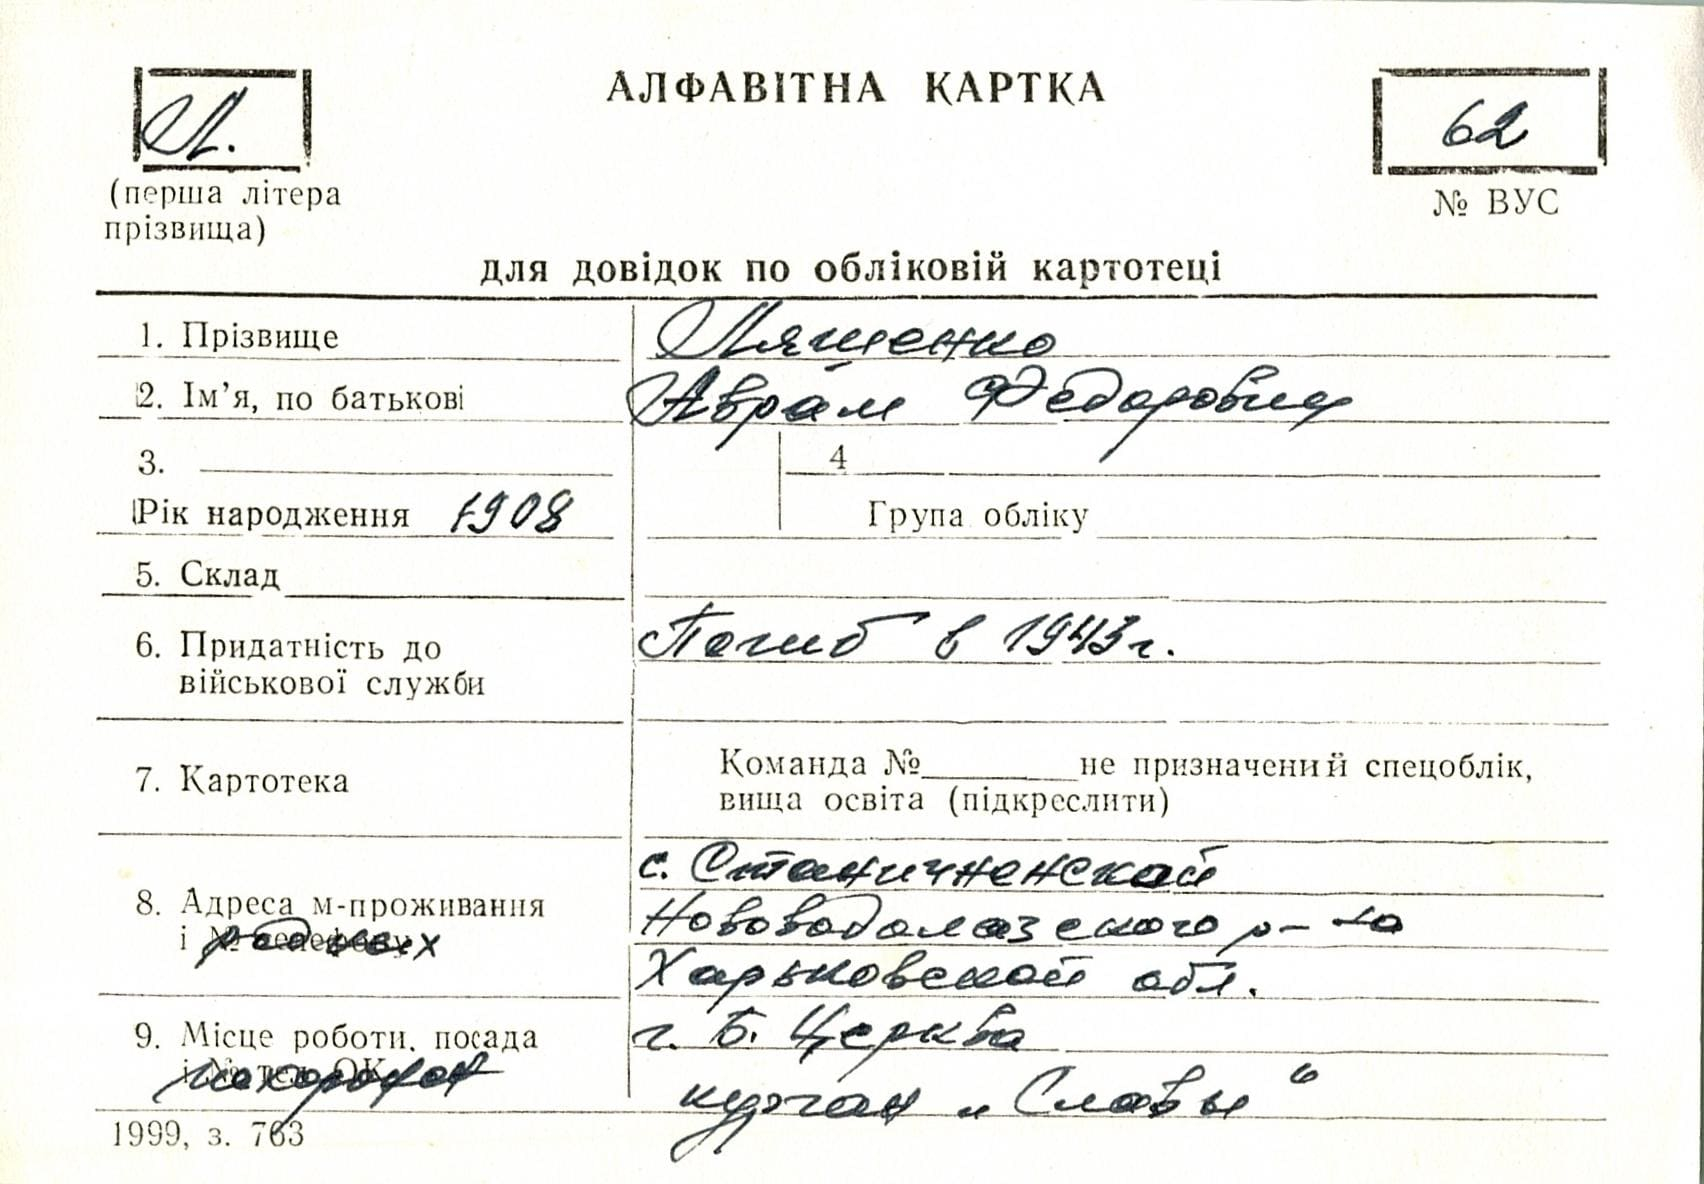 Л.
АЛФАВІТНА КАРТКА
62
(перша літера
прізвища)
№ ВУС
для довідок по обліковій картотеці
1. Прізвище Лященко
2. Ім’я, по батькові Аврам Федорович
3. 4
Рік народження 1908 Група обліку
5. Склад
6. Придатність до Погиб в 1943 г.
військової служби
7. Картотека Команда №______не призначений спецоблік,
вища освіта (підкреслити)
с. Станичненской
8. Адреса м-проживання Нововодолазского р-на
і родных Харьковской обл.
9. Місце роботи, посада г. Б. Церква
похорон курган „Славы“
1999, з. 763